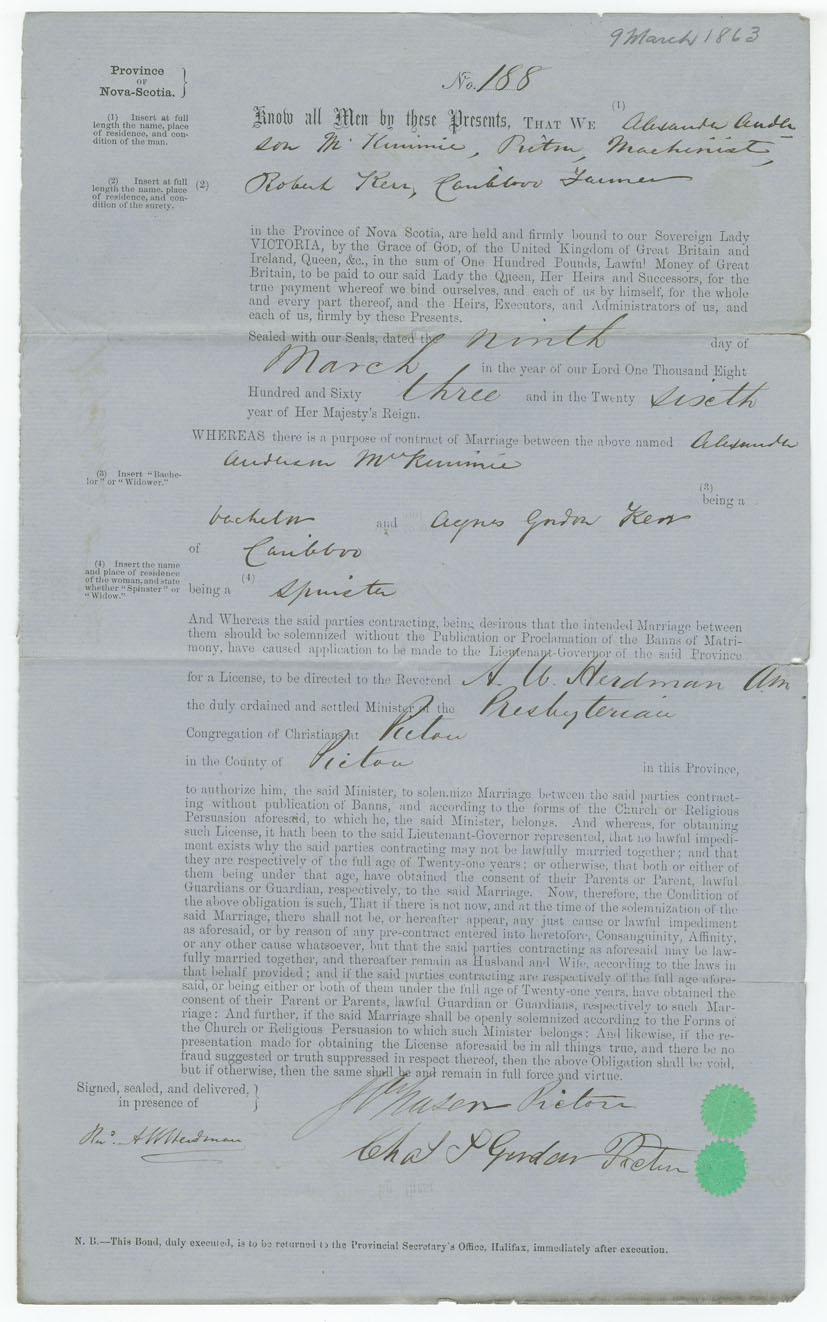 9 March 1863
Province
OF
Nova-Scotia.
No. 188
(1) Insert at full
length the name, place
of residence, and con-
dition of the man.
Know all Men by these Presents, THAT WE (1) Alexander Ander
son Mc Kimmie, Pictou, Machinist,
(2) Insert at full
length the name, place
of residence, and con-
dition of the surety.
(2) Robert Kerr, Caribboo Farmer
in the Province of Nova Scotia, are held and firmly bound to our Sovereign Lady
VICTORIA, by the Grace of GOD, of the United Kingdom of Great Britain and
Ireland, Queen, &c., in the sum of One Hundred Pounds, Lawful Money of Great
Britain, to be paid to our said Lady the Queen, Her Heirs and Successors, for the
true payment whereof we bind ourselves, and each of us by himself, for the whole
and every part thereof, and the Heirs, Executors, and Administrators of us, and
each of us, firmly by these Presents.
Sealed with our Seals, dated the ninth day of
March in the year of our Lord One Thousand Eight
Hundred and Sixty three and in the Twenty sixth
year of Her Majesty's Reign.
WHEREAS there is a purpose of contract of Marriage between the above named Alexander
Anderson McKimmie
(3) Insert "Bache-
lor" or "Widower."
(3)
being a
bachelor and Agnes Gordon Kerr
of Caribboo
(4) Insert the name
and place of residence
of the woman, and state
whether "Spinster" or
"Widow."
being a (4) Spinster
And Whereas the said parties contracting, being desirous that the intended Marriage between
them should be solemnized without the Publication or Proclamation of the Banns of Matri-
mony, have caused application to be made to the Lieutenant-Governor of the said Province
for a License, to be directed to the Reverend A. W. Herdman A.M.
the duly ordained and settled Minister of the Presbyterian
Congregation of Christians at Pictou
in the County of Pictou in this Province,
to authorize him, the said Minister, to solemnize Marriage between the said parties contract-
ing without publication of Banns, and according to the forms of the Church or Religious
Persuasion aforesaid, to which he, the said Minister, belongs. And whereas, for obtaining
such License, it hath been to the said Lieutenant-Governor represented, that no lawful impedi-
ment exists why the said parties contracting may not be lawfully married together; and that
they are respectively of the full age of Twenty-one years; or otherwise, that both or either of
them being under that age, have obtained the consent of their Parents or Parent, lawful
Guardians or Guardian, respectively, to the said Marriage. Now, therefore, the Condition of
the above obligation is such, That if there is not now, and at the time of the solemnization of the
said Marriage, there shall not be, or hereafter appear, any just cause or lawful impediment
as aforesaid, or by reason of any pre-contract entered into heretofore, Consanguinity, Affinity,
or any other cause whatsoever, but that the said parties contracting as aforesaid may be law-
fully married together, and thereafter remain as Husband and Wife, according to the laws in
that behalf provided; and if the said parties contracting are respectively of the full age afore-
said, or being either or both of them under the full age of Twenty-one years, have obtained the
consent of their Parent or Parents, lawful Guardian or Guardians, respectively to such Mar-
riage: And further, if the said Marriage shall be openly solemnized according to the Forms of
the Church or Religious Persuasion to which such Minister belongs: And likewise, if the re-
presentation made for obtaining the License aforesaid be in all things true, and there be no
fraud suggested or truth suppressed in respect thereof, then the above Obligation shall be void,
but if otherwise, then the same shall be and remain in full force and virtue.
Signed, sealed, and delivered,
in presence of
Pictou
A W Herdman
Chas Gordon Pictou
N. B.—This Bond, duly executed, is to be returned to the Provincial Secretary's Office, Halifax, immediately after execution.